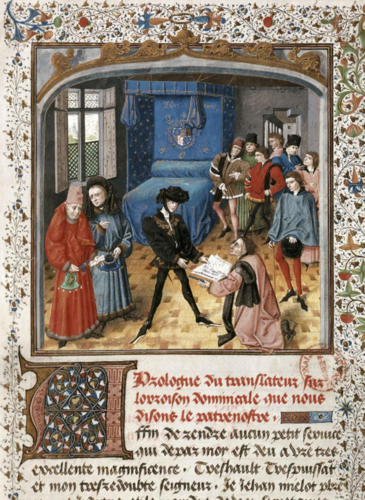 Prologue du translateur sur
loroison dominicale que nous
disons le patrenostre
Affin de rendre aucun petit seruice
qui de par moy est deu a vre tres
excellente magnificence. Treshault Trespuissāt
et mon tresredoubte seigneur. Je Jehan mielot